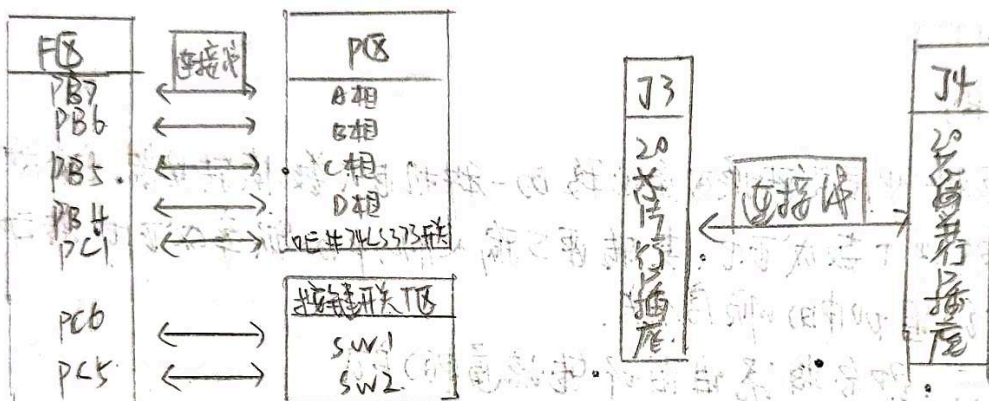 F区
PB7
PB6
PB5
PB4
PC1
PC6
PC5
连接线
P区
A相
B相
C相
D相
OE#74LS373开关
按键开关T区
SW1
SW2
J3
20芯并行口插座
连接线
J4
20芯并行口插座